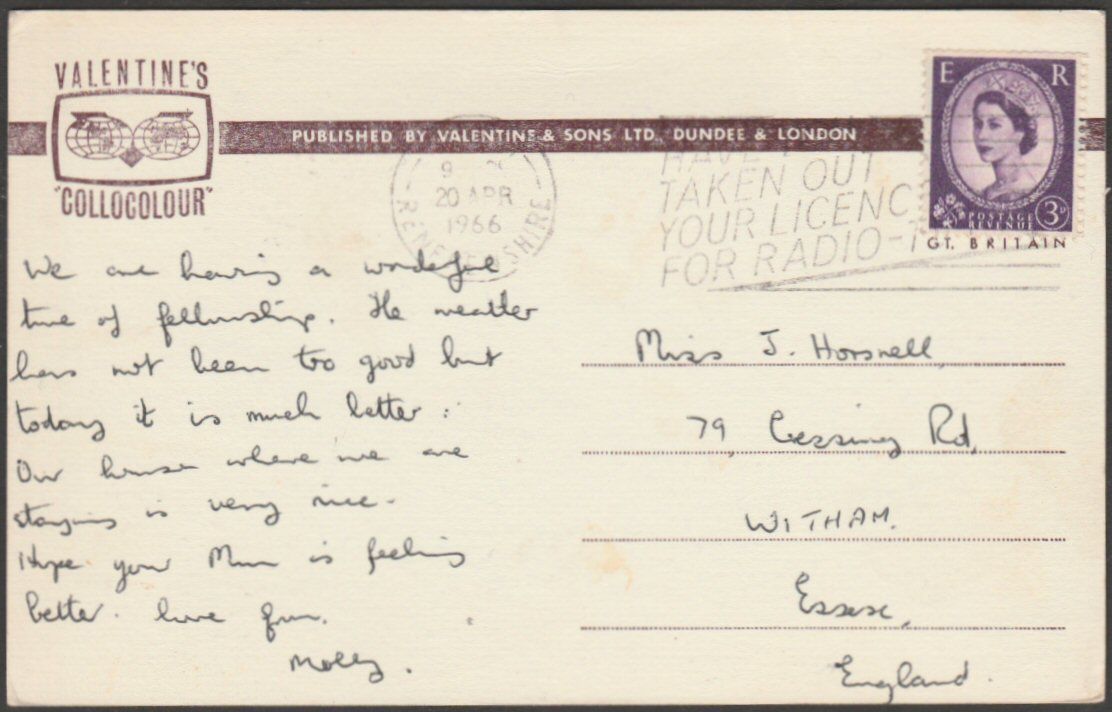 VALENTINE'S
"COLLOCOLOUR"
PUBLISHED BY VALENTINE & SONS LTD., DUNDEE & LONDON
20 APR
1966
RENFREWSHIRE
HAVE
TAKEN OUT
YOUR LICENC
FOR RADIO-T
E R
POSTAGE
REVENUE
3D
GT. BRITAIN
We are having a wonderful
time of fellowship. The weather
has not been too good but
today it is much better.
Our house where we are
staying is very nice.
Hope your Mum is feeling
better. love from.
Molly.
Miss J. Horsnell
79, Cressing Rd,
WITHAM.
Essex,
England.